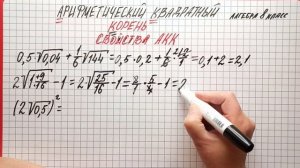 АРИФМЕТИЧЕСКИЙ КВАДРАТНЫЙ
КОРЕНЬ
АЛГЕБРА 8 КЛАСС
СВОЙСТВА АКК
0,5·√0,04 + 1/6√144 = 0,5·0,2 + 1/6·12/1 = 0,1+2 = 2,1
2√(1 9/16) − 1 = 2√(25/16) − 1 = 2/1·5/4 − 1 = 2
(2√0,5)² =